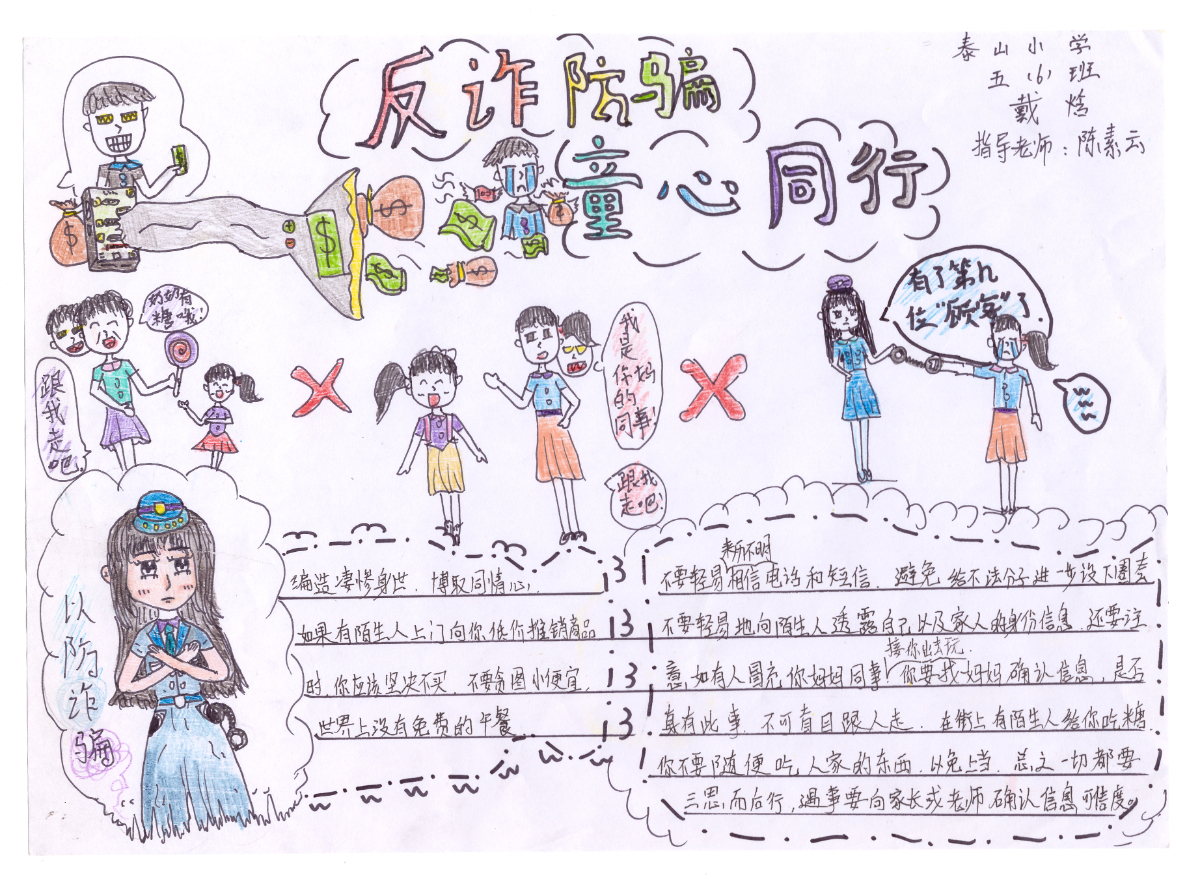 反诈防骗
童心同行
泰山小学
五(6)班
戴焓
指导老师：陈素云
奶奶有
糖哦!
跟我走吧
我是你妈的同事!
跟我
走吧!
有了第几
位“顾客”了
以防诈骗
编造凄惨身世，博取同情心，
如果有陌生人上门向你低价推销商品
时，你应该坚决不买，不要贪图小便宜，
世界上没有免费的午餐
来历不明
不要轻易相信电话和短信，避免给不法分子进一步设下圈套
不要轻易地向陌生人透露自己以及家人的身份信息，还要注
接你出去玩.
意，如有人冒充你妈妈同事，你要找妈妈确认信息，是否
真有此事，不可盲目跟人走，在街上有陌生人给你吃糖
你不要随便吃人家的东西，以免上当，总之一切都要
三思而后行，遇事要向家长或老师确认信息可信度。